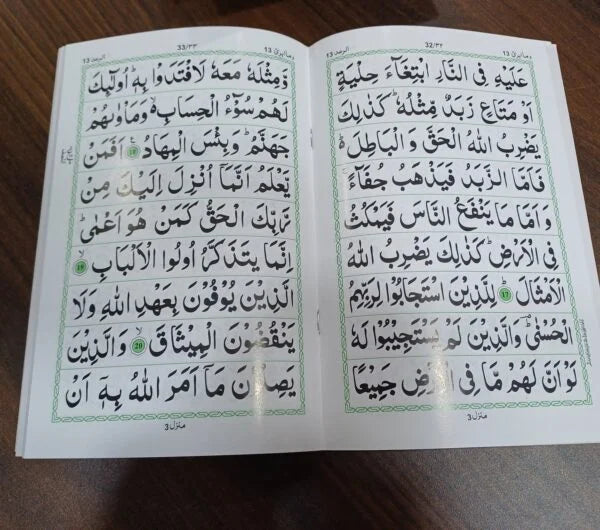 الرعد 13
32/٣٢
وما ابرئ 13
عَلَيْهِ فِى النَّارِ ابْتِغَآءَ حِلْيَةٍ
اَوْ مَتَاعٍ زَبَدٌ مِّثْلُهٗ ؕ كَذٰلِكَ
يَضْرِبُ اللّٰهُ الْحَقَّ وَ الْبَاطِلَ ؕ۬
فَاَمَّا الزَّبَدُ فَيَذْهَبُ جُفَآءً ۚ
وَ اَمَّا مَا يَنْفَعُ النَّاسَ فَيَمْكُثُ
فِى الْاَرْضِ ؕ كَذٰلِكَ يَضْرِبُ اللّٰهُ
الْاَمْثَالَ ؕ 17 لِلَّذِيْنَ اسْتَجَابُوْا لِرَبِّهِمُ
الْحُسْنٰى ؕ وَالَّذِيْنَ لَمْ يَسْتَجِيْبُوْا لَهٗ
لَوْ اَنَّ لَهُمْ مَّا فِى الْاَرْضِ جَمِيْعًا
منزل 3
الرعد 13
33/٣٣
وما ابرئ 13
وَّمِثْلَهٗ مَعَهٗ لَافْتَدَوْا بِهٖ ؕ اُولٰٓئِكَ
لَهُمْ سُوْٓءُ الْحِسَابِ ۙ۬ وَمَاْوٰىهُمْ
جَهَنَّمُ ؕ وَبِئْسَ الْمِهَادُ 18 اَفَمَنْ
يَّعْلَمُ اَنَّمَاۤ اُنْزِلَ اِلَيْكَ مِنْ
رَّبِّكَ الْحَقُّ كَمَنْ هُوَ اَعْمٰى ؕ
اِنَّمَا يَتَذَكَّرُ اُولُوا الْاَلْبَابِ ۙ 19
الَّذِيْنَ يُوْفُوْنَ بِعَهْدِ اللّٰهِ وَلَا
يَنْقُضُوْنَ الْمِيْثَاقَ ۙ 20 وَالَّذِيْنَ
يَصِلُوْنَ مَاۤ اَمَرَ اللّٰهُ بِهٖۤ اَنْ
منزل 3